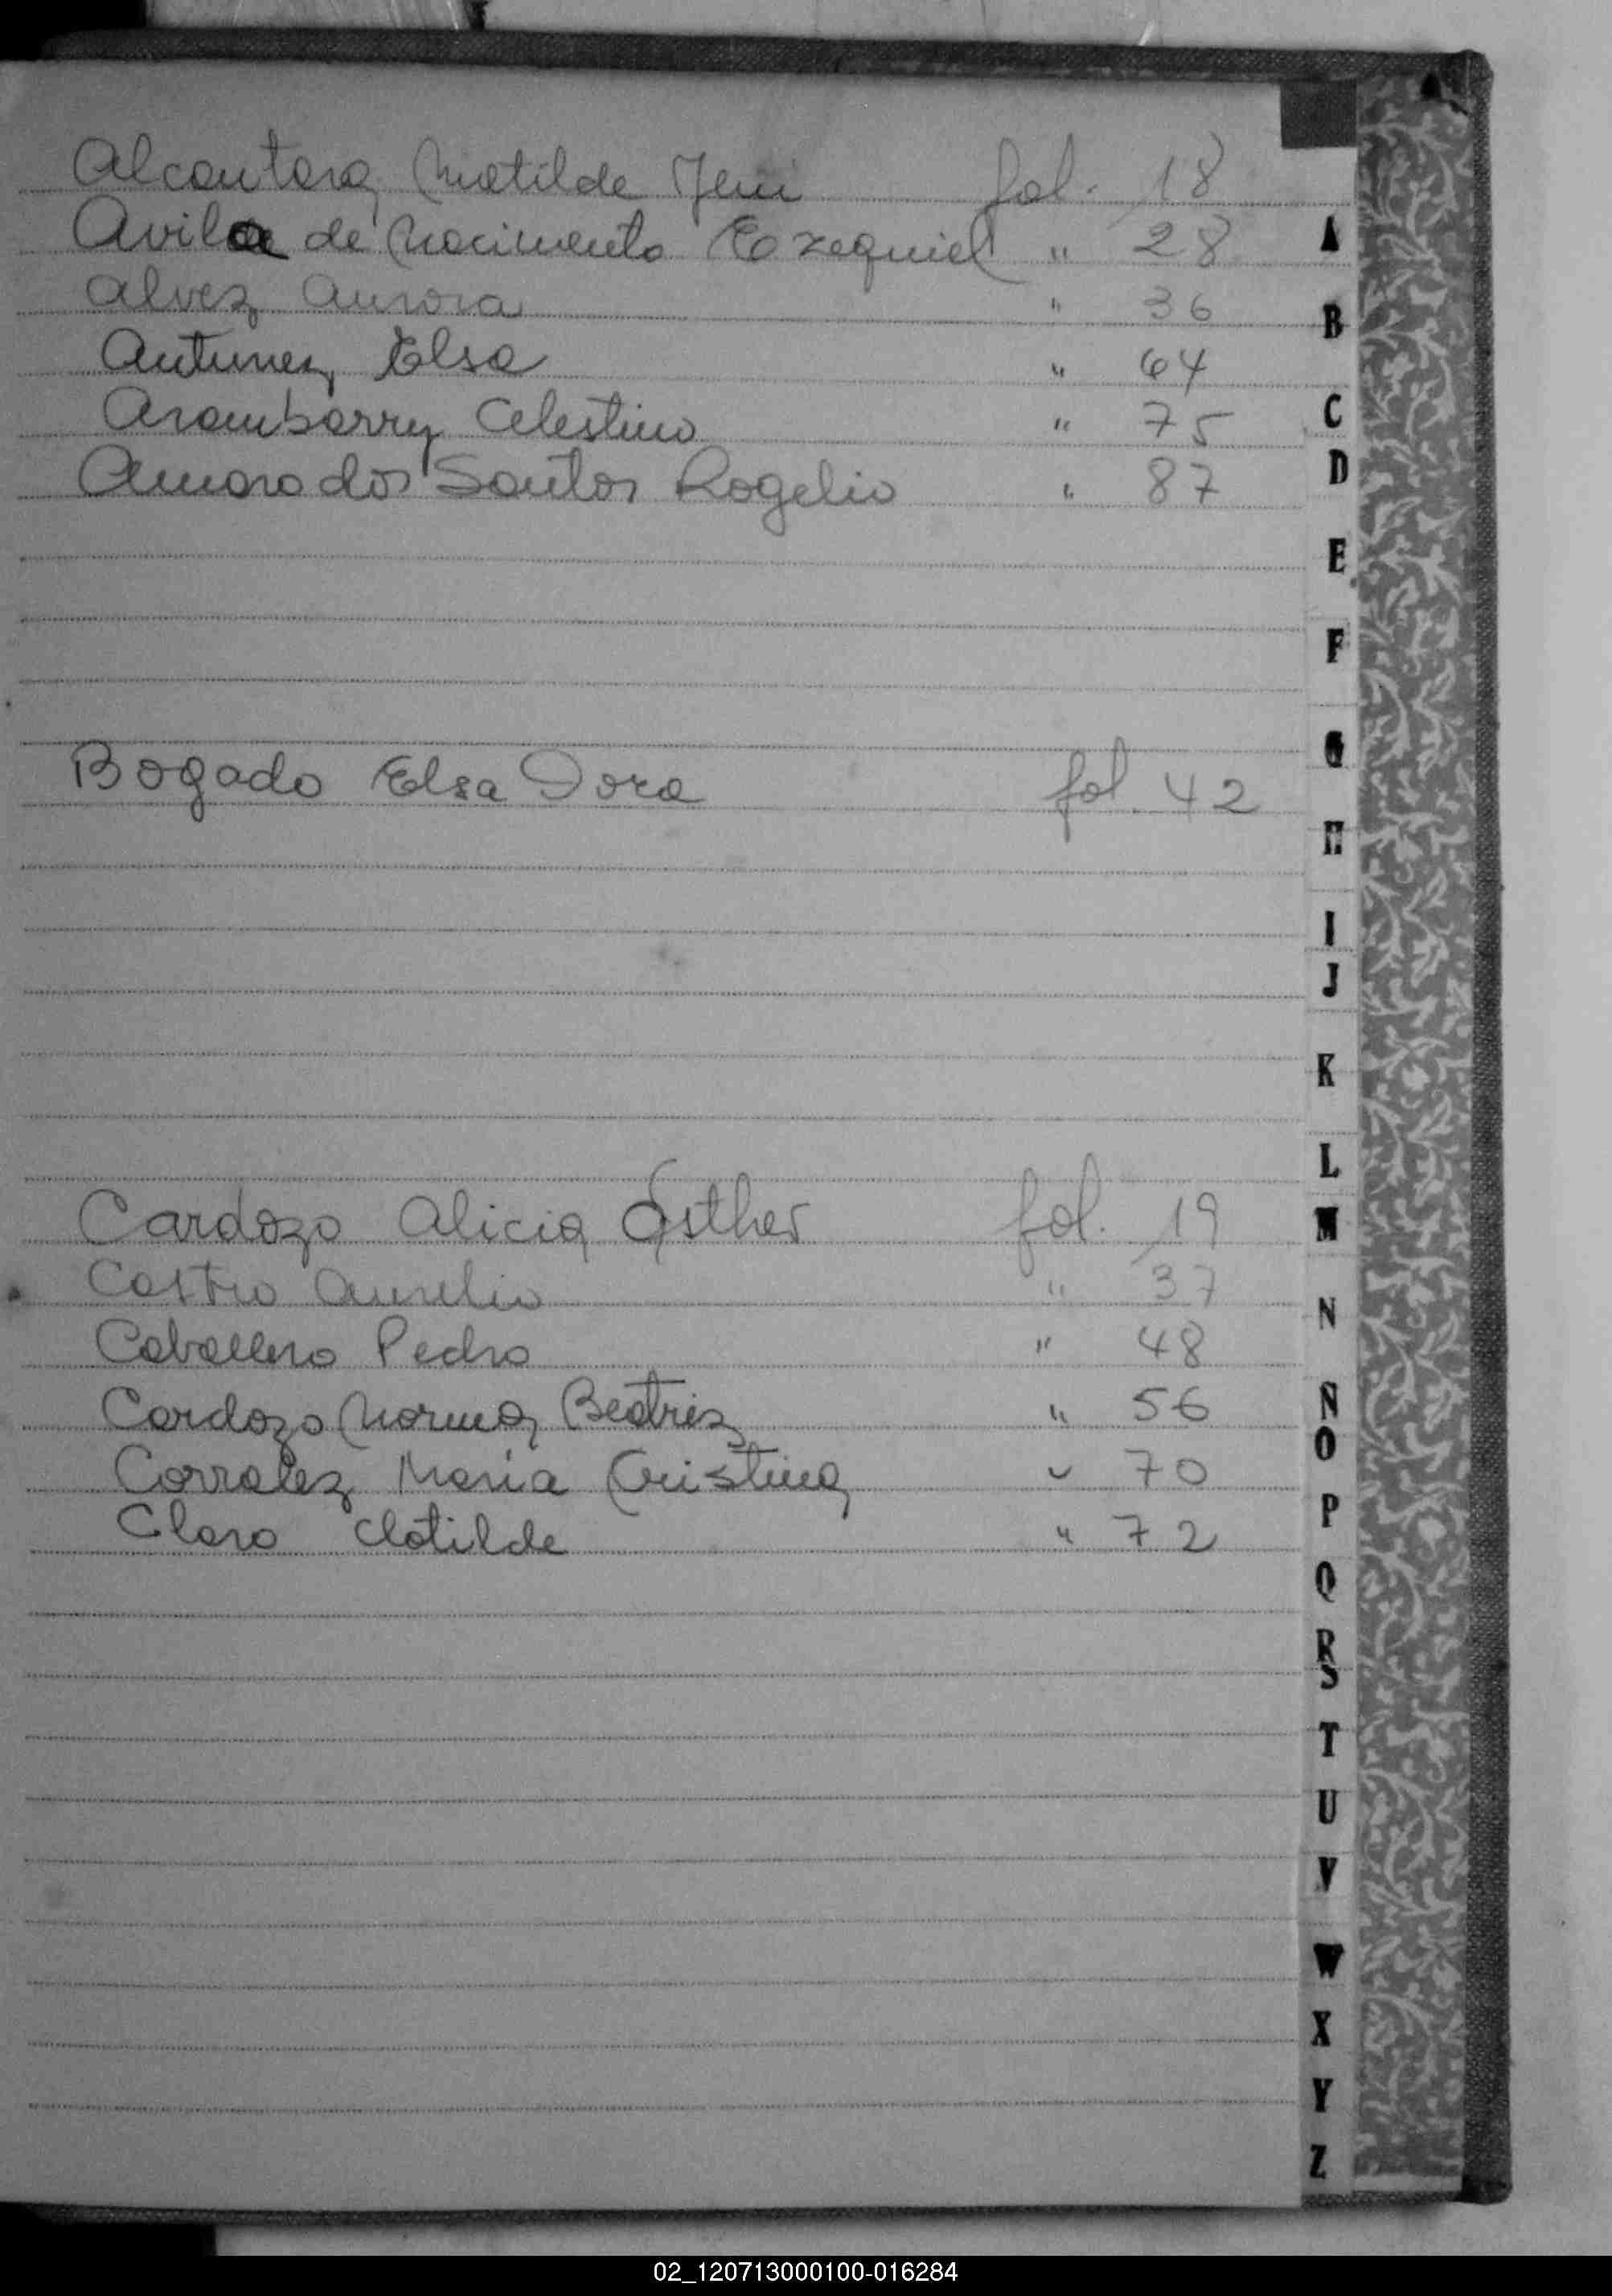 Alcantara Matilde Jeni fol. 18
Avila de Nacimento Ezequiel " 28
Alvez Aurora " 36
Antunez Elsa " 64
Arambarry Celestino " 75
Amaro dos Santos Rogelio " 87
Bogado Elsa Dora fol. 42
Cardozo Alicia Esther fol. 19
Castro Aurelio " 37
Caballero Pedro " 48
Cardozo Norma Beatriz " 56
Corralez Maria Cristina " 70
Claro Clotilde " 72
A
B
C
D
E
F
G
H
I
J
K
L
M
N
N
O
P
Q
R
S
T
U
V
W
X
Y
Z
02_120713000100-016284